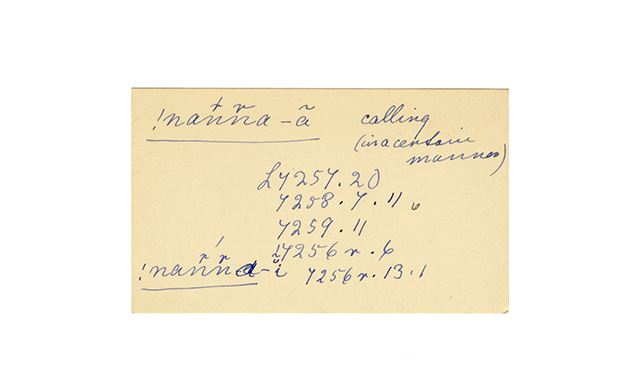 !nańn̆a-ã calling
(in a certain
manner)
L7257.20
7258.7.11
7259.11
L7256v.6
!nańn̆a-ĭ 7256v.13.1